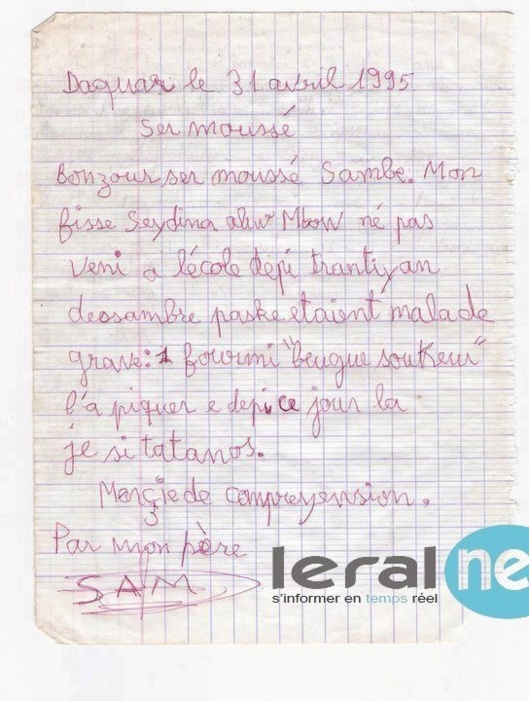 Daquar le 31 avril 1995
Ser moussé
Bonzour ser moussé Sambe. Mon
fisse Seydina aliw Mbow né pas
veni a lécole depi trantiyan
deosambre paske etaient malade
grave: 1 fourmi "beugue souKeur"
l'a piquer e depi ce jour la
je si tatanos.
Merçie de compreyension.
Par mon père
SAM
leral ne
s'informer en temps réel